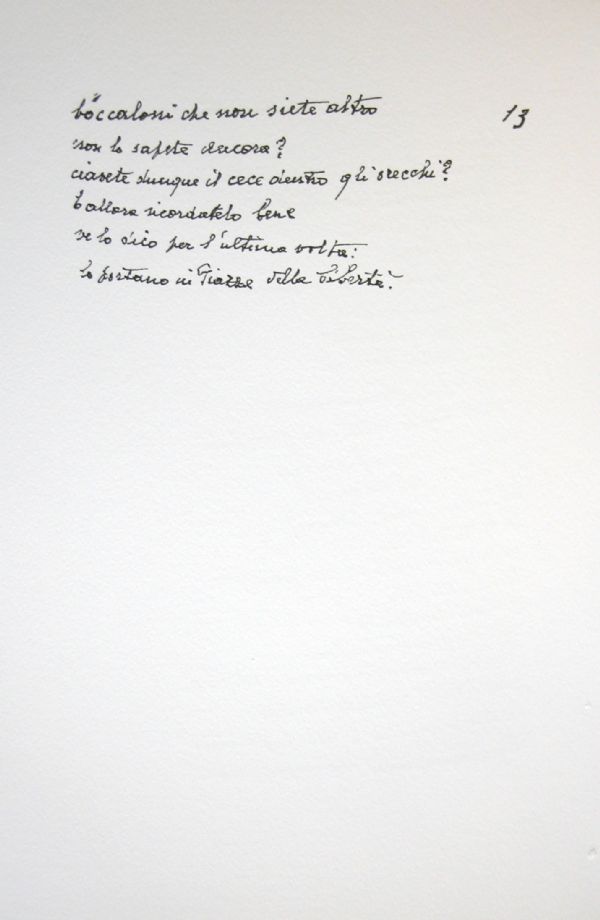 boccaloni che non siete altro
13
non lo sapete ancora?
ciavete dunque il cece dentro gli orecchi?
E allora ricordatelo bene
ve lo dico per l'ultima volta:
lo portano in Piazza della Libertà.